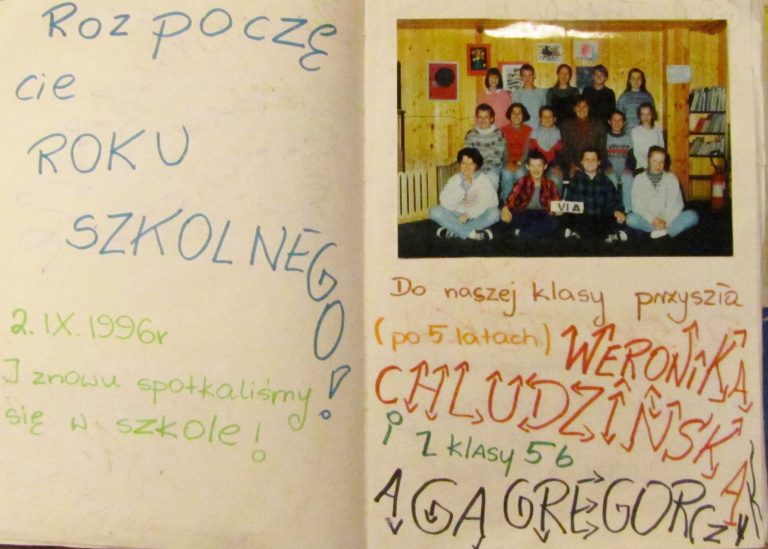 ROZPOCZĘ
cie
ROKU
SZKOLNEGO!
2.IX.1996r
I znowu spotkaliśmy
się w szkole!
VI A
Do naszej klasy przyszła
(po 5 latach) WERONIKA
CHLUDZIŃSKA
i z klasy 5b
AGA GREGORCZYK